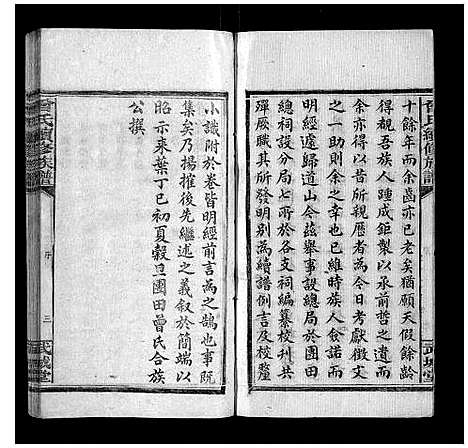 曾氏續修族譜
十餘年而余齒亦已老矣猶願天假余齡
得覩吾族人踵成鉅製以承前哲之遺而
余亦得以昔所親歷者為今日考獻徵文
之一助則余之幸也已維時族人僉諾而
明經遽歸道山今茲舉事設總局於團田
總祠設分局七所於各支祠編纂校刊共
殫厥職其所發明別為續譜例言及校釐
武城堂
小識附於卷皆明經前言為之鵠也事既
集矣乃揚搉後先繼述之義叙於簡端以
昭示來葉丁巳初夏穀旦團田曾氏合族
公撰
曾氏續修族譜
序
三
武城堂